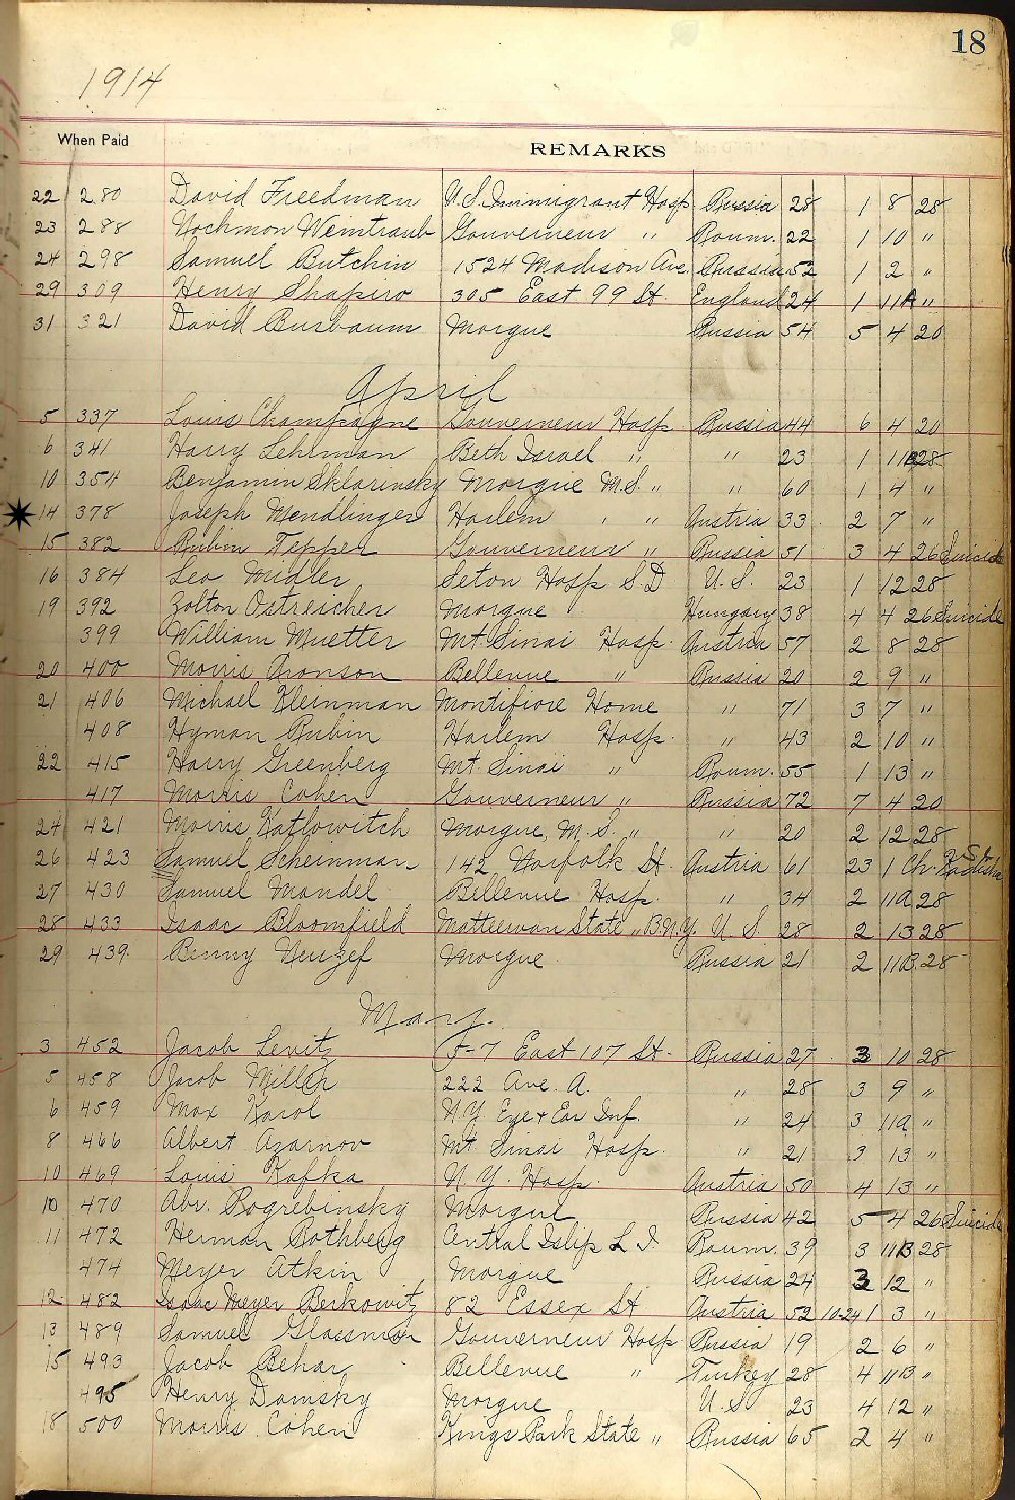 18
1914
When Paid REMARKS
22 280 David Freedman U.S. Immigrant Hosp. Russia 28 1 8 28
23 288 Nochmon Weintraub Gouverneur " Roum. 22 1 10 "
24 298 Samuel Butchin 1524 Madison Ave. Russia 52 1 2 "
29 309 Henry Shapiro 305 East 99 St. England 24 1 11A "
31 321 David Busbaum Morgue Russia 54 5 4 20
April
5 337 Louis Champagne Gouverneur Hosp Russia 44 6 4 20
6 341 Harry Lehlman Beth Israel " " 23 1 11B 28
10 354 Benjamin Sklarinsky Morgue M.S. " " 60 1 4 "
14 378 Joseph Mendlinger Harlem " Austria 33 2 7 "
15 382 Rubin Tepper Gouverneur " Russia 51 3 4 26 Suicide
16 384 Leo Midler Seton Hosp S.D U.S. 23 1 12 28
19 392 Zolton Ostreicher Morgue Hungary 38 4 4 26 Suicide
399 William Muetter Mt. Sinai Hosp. Austria 57 2 8 28
20 400 Morris Aronson Bellevue " Russia 20 2 9 "
21 406 Michael Kleinman Montifiore Home " 71 3 7 "
408 Hyman Rubin Harlem Hosp. " 43 2 10 "
22 415 Harry Greenberg Mt. Sinai " Roum. 55 1 13 "
417 Morris Cohen Gouverneur " Russia 72 7 4 20
24 421 Morris Katlowitch Morgue, M.S. " " 20 2 12 28
26 423 Samuel Scheinman 142 Norfolk St Austria 61 23 1 Ch.
27 430 Samuel Mandel Bellevue Hosp. " 34 2 11A 28
28 433 Isaac Bloomfield Matteewan State " B.N.Y. U.S. 28 2 13 28
29 439. Benny Neuzef Morgue Russia 21 2 11B. 28
May.
3 452 Jacob Levitz 5-7 East 107 St. Russia 27 3 10 28
5 458 Jacob Miller 222 Ave. A. " 28 3 9 "
6 459 Max Karol N.Y. Eye + Ear Inf. " 24 3 11A "
8 466 Albert Azarnov Mt. Sinai Hosp. " 21 3 13 "
10 469 Louis Kafka N.Y. Hosp. Austria 50 4 13 "
10 470 Abr. Pogrebinsky Morgue Russia 42 5 4 26 Suicide
11 472 Herman Rothberg Central Islip L I Roum. 39 3 11B 28
474 Meyer Atkin Morgue Russia 24 3 12 "
12 482 Isaac Meyer Berkowitz 82 Essex St Austria 52 10-24 1 3 "
13 489 Samuel Glassman Gouverneur Hosp Russia 19 2 6 "
15 493 Jacob Behar Bellevue " Turkey 28 4 11B "
495 Henry Domsky Morgue U.S 23 4 12 "
18 500 Morris Cohen Kings Park State " Russia 65 2 4 "